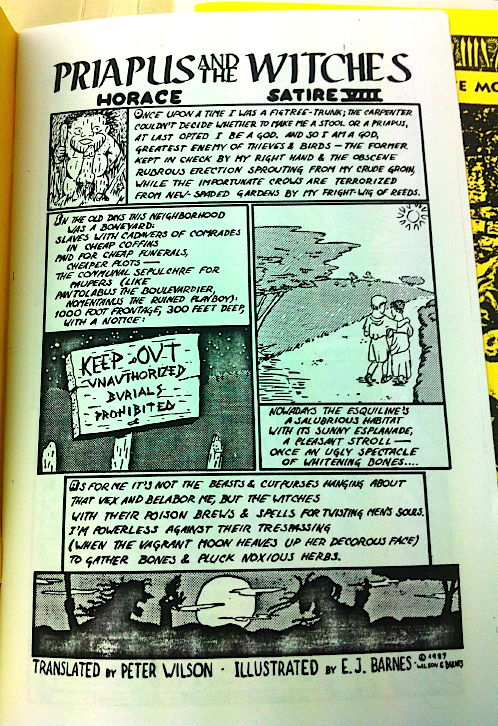 PRIAPUS AND THE WITCHES
HORACE SATIRE VIII
ONCE UPON A TIME I WAS A FIGTREE-TRUNK; THE CARPENTER
COULDN'T DECIDE WHETHER TO MAKE ME A STOOL OR A PRIAPUS,
AT LAST OPTED I BE A GOD. AND SO I AM A GOD,
GREATEST ENEMY OF THIEVES & BIRDS — THE FORMER
KEPT IN CHECK BY MY RIGHT HAND & THE OBSCENE
RUBROUS ERECTION SPROUTING FROM MY CRUDE GROIN,
WHILE THE IMPORTUNATE CROWS ARE TERRORIZED
FROM NEW-SPADED GARDENS BY MY FRIGHT-WIG OF REEDS.
IN THE OLD DAYS THIS NEIGHBORHOOD
WAS A BONEYARD:
SLAVES WITH CADAVERS OF COMRADES
IN CHEAP COFFINS
PAID FOR CHEAP FUNERALS,
CHEAPER PLOTS —
THE COMMUNAL SEPULCHRE FOR
PAUPERS (LIKE
PANTOLABUS THE BOULEVARDIER,
NOMENTANUS THE RUINED PLAYBOY):
1000 FOOT FRONTAGE, 300 FEET DEEP,
WITH A NOTICE:
KEEP OUT
UNAUTHORIZED
BURIALS
PROHIBITED
NOWADAYS THE ESQUILINE'S
A SALUBRIOUS HABITAT
WITH ITS SUNNY ESPLANADE,
A PLEASANT STROLL —
ONCE AN UGLY SPECTACLE
OF WHITENING BONES....
AS FOR ME IT'S NOT THE BEASTS & CUTPURSES HANGING ABOUT
THAT VEX AND BELABOR ME, BUT THE WITCHES
WITH THEIR POISON BREWS & SPELLS FOR TWISTING MEN'S SOULS.
I'M POWERLESS AGAINST THEIR TRESPASSING
(WHEN THE VAGRANT MOON HEAVES UP HER DECOROUS FACE)
TO GATHER BONES & PLUCK NOXIOUS HERBS.
TRANSLATED BY PETER WILSON · ILLUSTRATED BY E.J. BARNES
© 1997
WILSON & BARNES
E MO